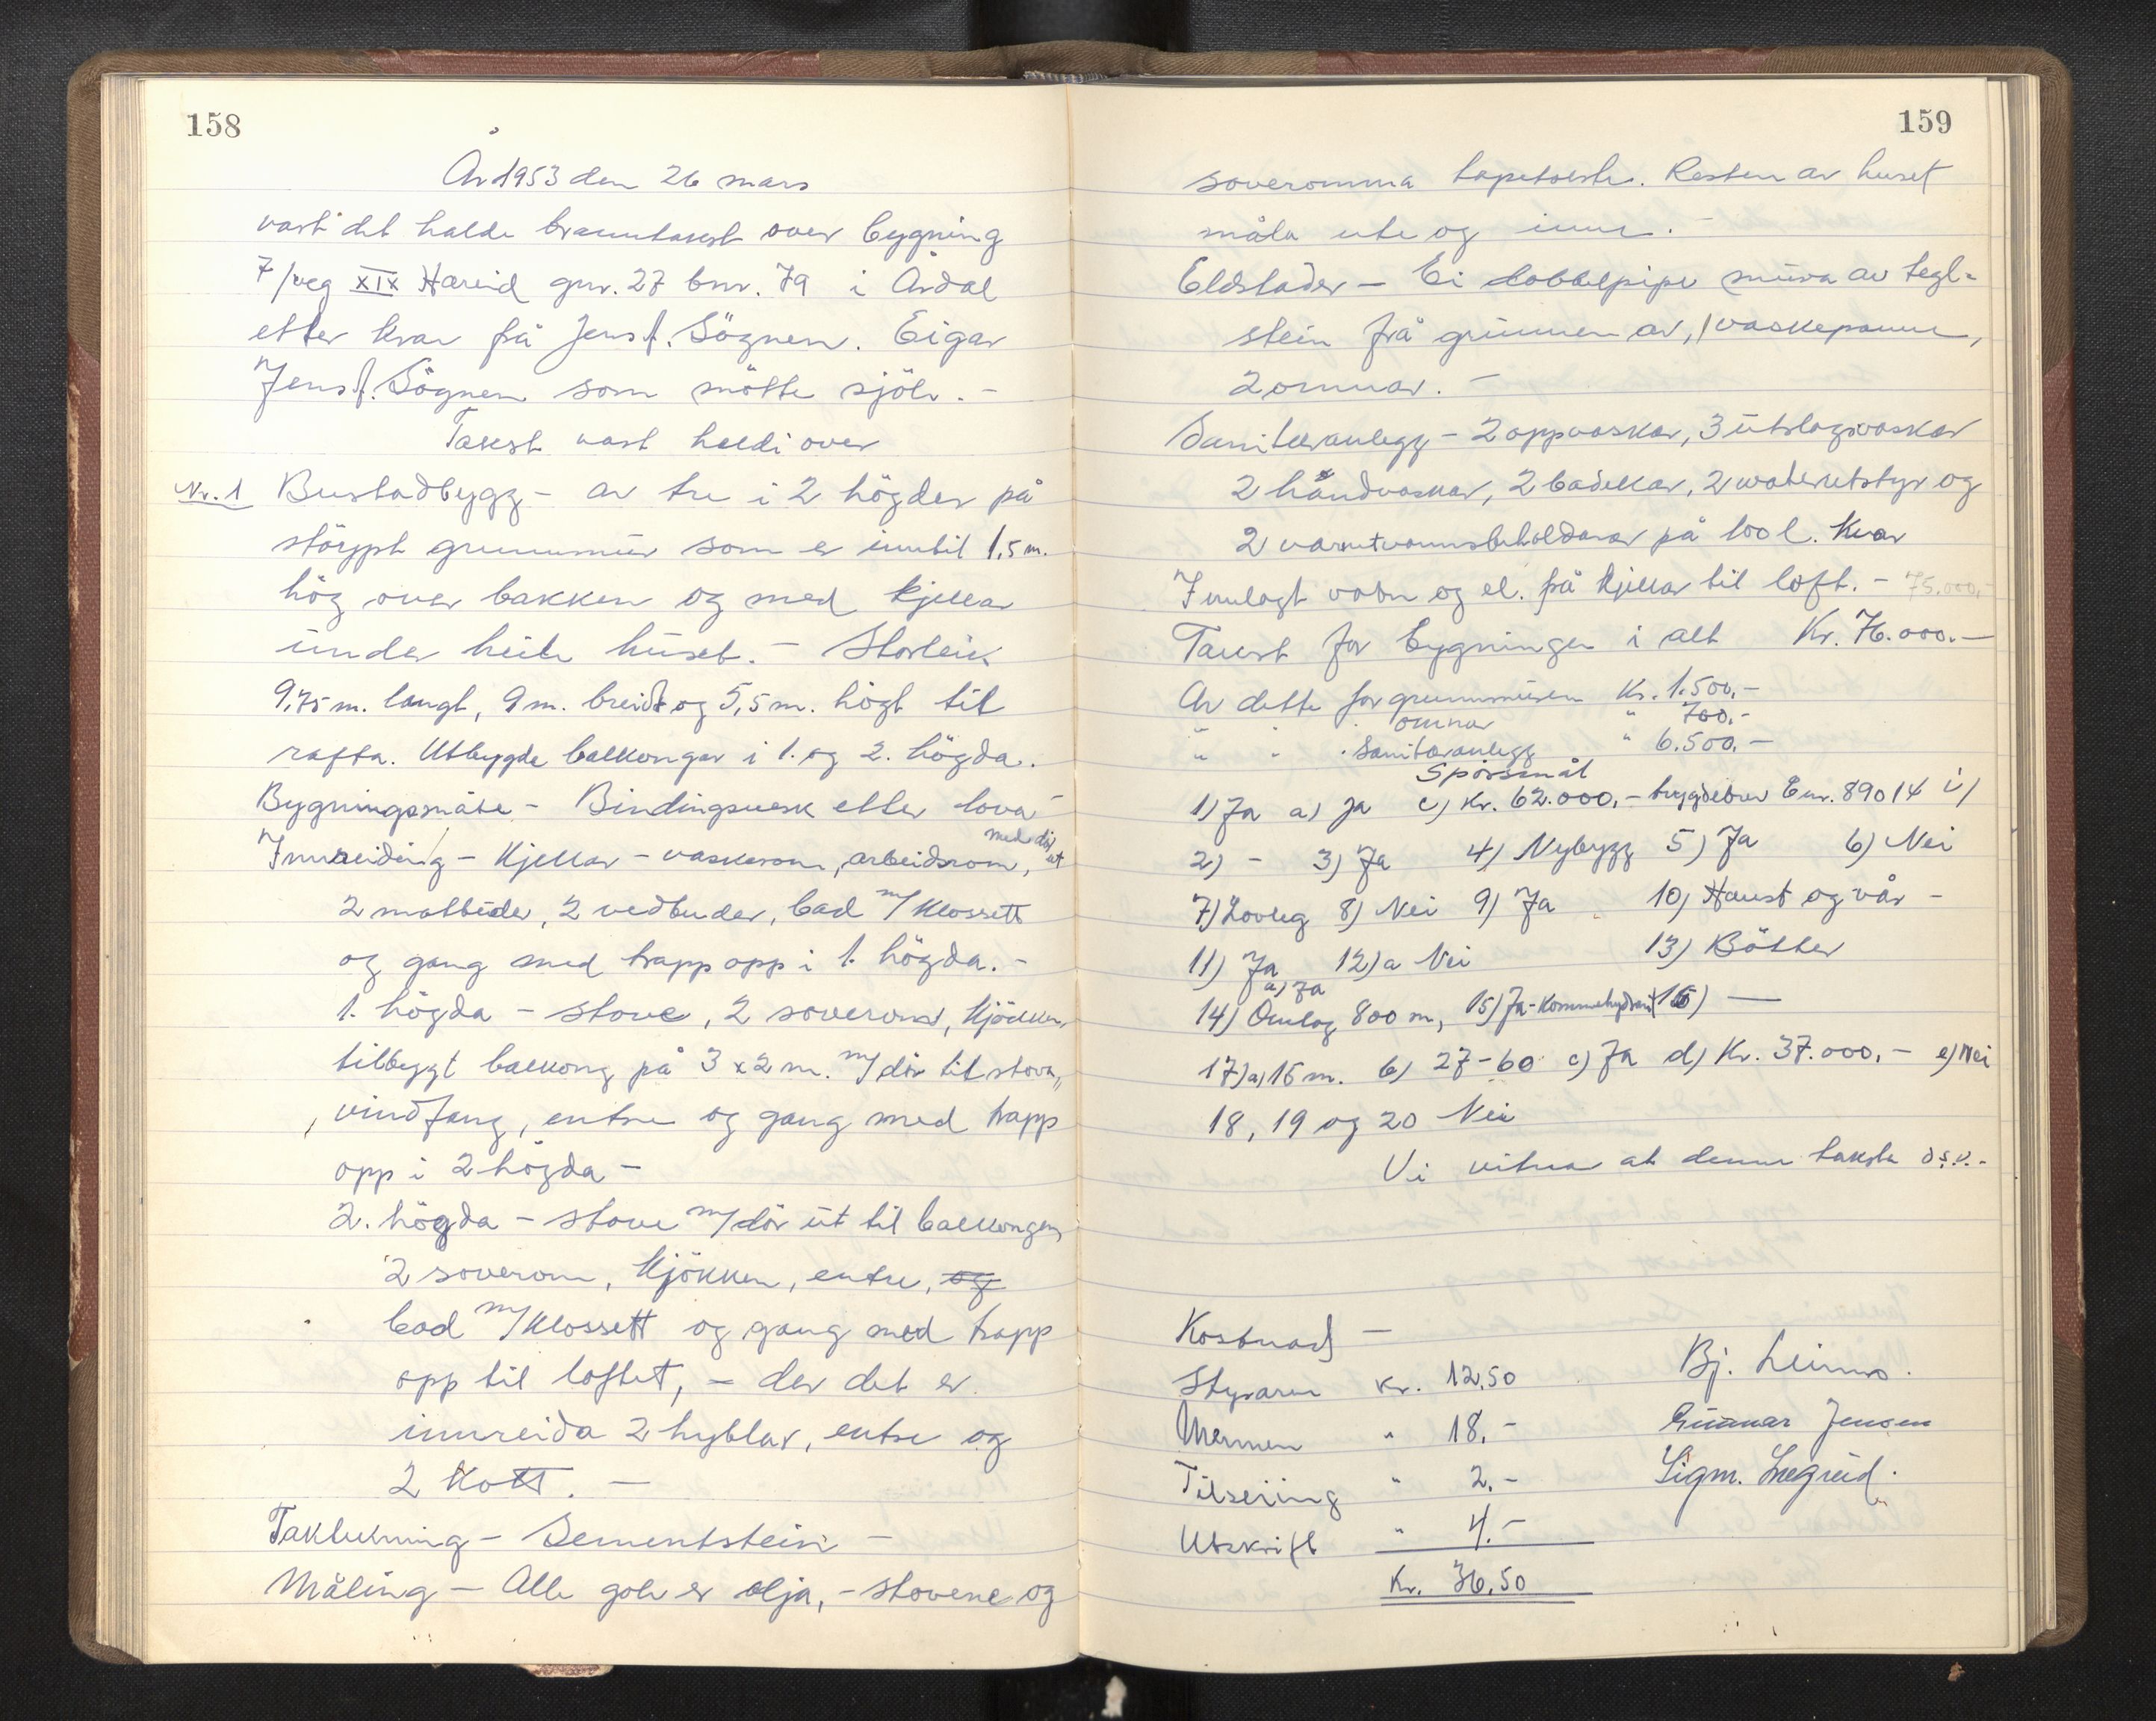 158
År 1953 den 26 mars
vart det halde branntakst over bygning
7/veg XIX Hareid gnr. 27 bnr. 79 i Årdal
etter krav frå Jens J. Sögnen. Eigar
Jens J. Sögnen som mötte sjölv. -
Takst vart haldi over
Nr. 1 Bustadbygg - av tre i 2 högder på
störypt grunnmur som er inntil 1,5 m.
hög over bakken og med kjellar
under heile huset. - Storleik
9,75 m. langt, 9 m. breidt og 5,5 m. högt til
rafta. Utbygde balkongar i 1. og 2. högda.
Bygningsmåte - Bindingsverk etter lova -
Innreiding - Kjellar - vaskerom, arbeidsrom, med dör ut
2 matbuder, 2 vedbuder, bad m/klossett
og gang med trapp opp i 1. högda. -
1. högda - stove, 2 soverom, kjökken,
tilbygt balkong på 3 x 2 m. m/dör til stova,
, vindfang, entre og gang med trapp
opp i 2 högda -
2. högda - stove m/dör ut til balkongen,
2 soverom, kjökken, entre, og
bad m/klossett og gang med trapp
opp til loftet, - der det er
innreida 2 hyblar, entre og
2 kott. -
Taktekning - Sementstein -
Måling - Alle golv er olja, - stovene og
159
soveromma tapetserte. Resten av huset
måla ute og inne. -
Eldstader - Ei dobbelpipe mura av tegl-
stein frå grunnen av, 1 vaskepanne,
2 omnar. -
Saniteranlegg - 2 oppvaskar, 3 utslagsvaskar
2 håndvaskar, 2 badekar, 2 waterutstyr og
2 varmtvannsbeholdarar på 100 l. kvar
Innlagt vatn og el. frå kjellar til loft. - 75.000,-
Takst for bygningen i alt Kr. 76.000.-
Av dette for grunnmuren Kr. 1.500,-
" " " omnar " 700,-
" " " Sanitæranlegg " 6.500,-
Spörsmål
1) Ja a) ja c) Kr. 62.000,- trygdebrev Enr. 89014 i)
2) - 3) Ja 4) Nybygg 5) Ja 6) Nei
7) Lovleg 8) Nei 9) Ja 10) Haust og vår -
11) Ja 12) a Nei 13) Bötter
a) Ja
14) Omlag 800 m, 15) Ja - Kommehydrant 16) —
17) a) 15 m. b) 27-60 c) Ja d) Kr. 37.000,- e) Nei
18, 19 og 20 Nei
Vi vitnar at denne takste o.s.v.-
Kostnad -
Styraren kr. 12.50 Bj. Leirmo.
Mennene " 18.- Gunnar Jensen
Tilseiing " 2.- Sigm.
Utskrift " 4.-
Kr. 36,50